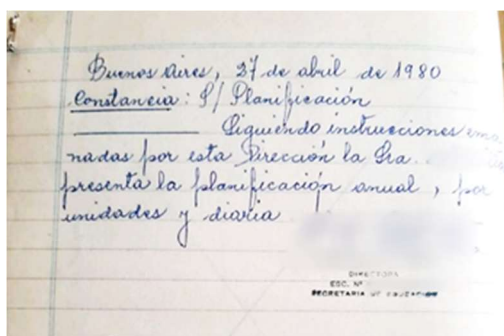 Buenos Aires, 27 de abril de 1980
Constancia: S/ Planificación
Siguiendo instrucciones ema
nadas por esta Dirección la Sra.
presenta la planificación anual, por
unidades y diaria
DIRECTORA
ESC. Nº
SECRETARIA DE EDUCACION